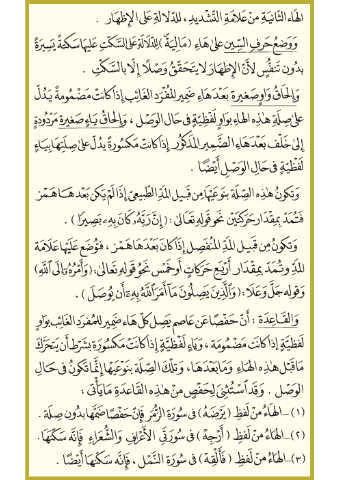 الهَاءِ الثَّانِيَةِ مِنْ عَلَامَةِ التَّشْدِيدِ ، لِلدَّلَالَةِ عَلَى الإِظْهَارِ .
وَوَضْعُ حَرْفِ السِّينِ عَلَى هَاءِ ( مَالِيَهْ ) لِلدَّلَالَةِ عَلَى السَّكْتِ عَلَيْهَا سَكْتَةً يَسِيرَةً
بِدُونِ تَنَفُّسٍ لِأَنَّ الإِظْهَارَ لَا يَتَحَقَّقُ وَصْلًا إِلَّا بِالسَّكْتِ .
وَإِلْحَاقُ وَاوٍ صَغِيرَةٍ بَعْدَ هَاءِ ضَمِيرِ المُفْرَدِ الغَائِبِ إِذَا كَانَتْ مَضْمُومَةً يَدُلُّ
عَلَى صِلَةِ هٰذِهِ الهَاءِ بِوَاوٍ لَفْظِيَّةٍ فِي حَالِ الوَصْلِ ، وَإِلْحَاقُ يَاءٍ صَغِيرَةٍ مَرْدُودَةٍ
إِلَى خَلْفٍ بَعْدَ هَاءِ الضَّمِيرِ المَذْكُورِ إِذَا كَانَتْ مَكْسُورَةً يَدُلُّ عَلَى صِلَتِهَا بِيَاءٍ
لَفْظِيَّةٍ فِي حَالِ الوَصْلِ أَيْضًا .
وَتَكُونُ هٰذِهِ الصِّلَةُ بِنَوْعَيْهَا مِنْ قَبِيلِ المَدِّ الطَّبِيعِيِّ إِذَا لَمْ يَكُنْ بَعْدَهَا هَمْزٌ
فَتُمَدُّ بِمِقْدَارِ حَرَكَتَيْنِ نَحْوُ قَوْلِهِ تَعَالَى : ( إِنَّ رَبَّهُۥ كَانَ بِهِۦ بَصِيرًا ) .
وَتَكُونُ مِنْ قَبِيلِ المَدِّ المُنْفَصِلِ إِذَا كَانَ بَعْدَهَا هَمْزٌ ، فَتُوضَعُ عَلَيْهَا عَلَامَةُ
المَدِّ وَتُمَدُّ بِمِقْدَارِ أَرْبَعِ حَرَكَاتٍ أَوْ خَمْسٍ نَحْوُ قَوْلِهِ تَعَالَى : ( وَأَمْرُهُۥٓ إِلَى ٱللَّهِ )
وَقَوْلِهِ جَلَّ وَعَلَا : ( وَٱلَّذِينَ يَصِلُونَ مَآ أَمَرَ ٱللَّهُ بِهِۦٓ أَن يُوصَلَ ) .
وَالقَاعِدَةُ : أَنَّ حَفْصًا عَنْ عَاصِمٍ يَصِلُ كُلَّ هَاءِ ضَمِيرٍ لِلْمُفْرَدِ الغَائِبِ بِوَاوٍ
لَفْظِيَّةٍ إِذَا كَانَتْ مَضْمُومَةً ، وَيَاءٍ لَفْظِيَّةٍ إِذَا كَانَتْ مَكْسُورَةً بِشَرْطِ أَنْ يَتَحَرَّكَ
مَا قَبْلَ هٰذِهِ الهَاءِ وَمَا بَعْدَهَا ، وَتِلْكَ الصِّلَةُ بِنَوْعَيْهَا إِنَّمَا تَكُونُ فِي حَالِ
الوَصْلِ . وَقَدِ ٱسْتُثْنِيَ لِحَفْصٍ مِنْ هٰذِهِ القَاعِدَةِ مَا يَأْتِي :
(١) - الهَاءُ مِنْ لَفْظِ ( يَرْضَهُ ) فِي سُورَةِ الزُّمَرِ فَإِنَّ حَفْصًا ضَمَّهَا بِدُونِ صِلَةٍ .
(٢) - الهَاءُ مِنْ لَفْظِ ( أَرْجِهْ ) فِي سُورَتَيِ الأَعْرَافِ وَالشُّعَرَاءِ فَإِنَّهُ سَكَّنَهَا .
(٣) - الهَاءُ مِنْ لَفْظِ ( فَأَلْقِهْ ) فِي سُورَةِ النَّمْلِ ، فَإِنَّهُ سَكَّنَهَا أَيْضًا .